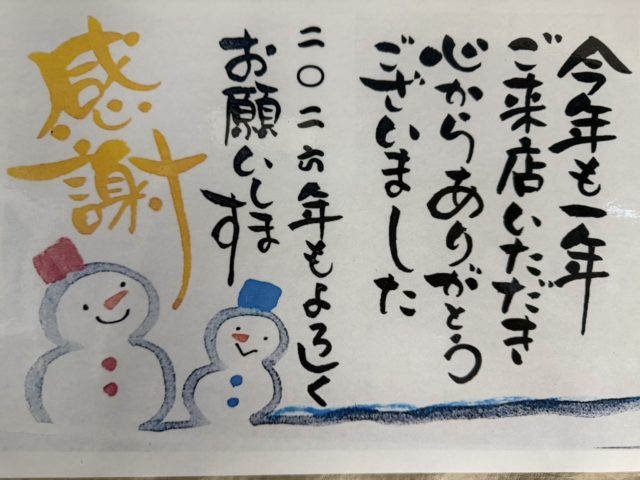 今年も一年
ご来店いただき
心からありがとう
ございました
二〇二六年もよろしく
お願いしま
す
感謝